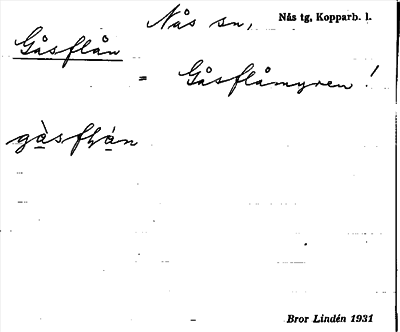 Nås sn, Nås tg, Kopparb. l.
Gåsflån
= Gåsflåmyren!
gàsflán
Bror Lindén 1931